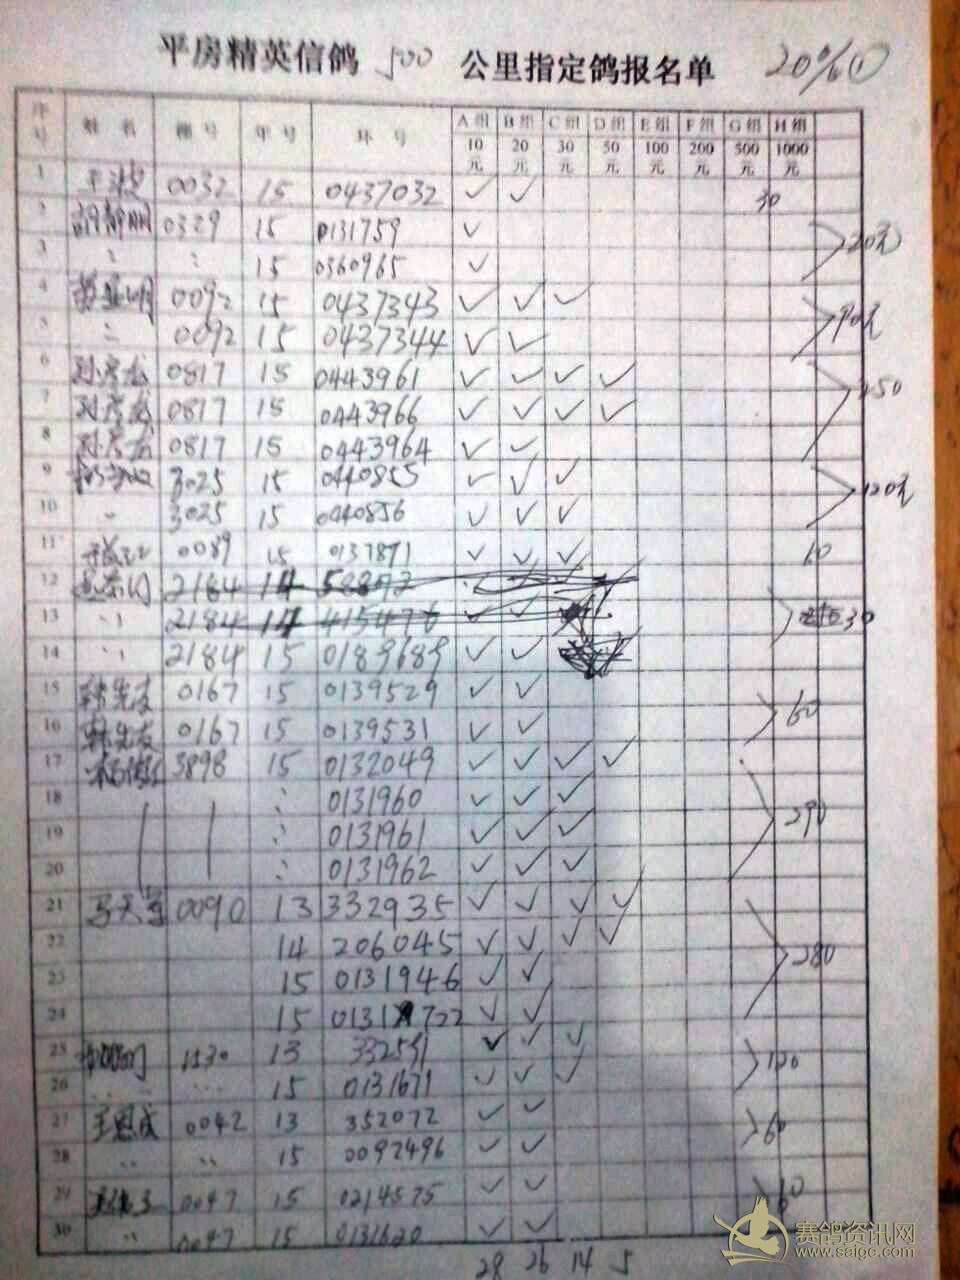 平房精英信鸽 500 公里指定鸽报名单 20% ①
序号 姓名 棚号 年号 环号 A组10元 B组20元 C组30元 D组50元 E组100元 F组200元 G组500元 H组1000元
1 0032 15 0437032 ✓ ✓ 30
2 胡静明 0329 15 0131759 ✓ 20元
3 〃 〃 15 0360965 ✓
4 0092 15 0437343 ✓ ✓ ✓ 90元
5 〃 0092 15 0437344 ✓ ✓
6 孙彦龙 0817 15 0443961 ✓ ✓ ✓ ✓ 250
7 孙彦龙 0817 15 0443966 ✓ ✓ ✓ ✓
8 孙彦龙 0817 15 0443964 ✓ ✓
9 3025 15 0440855 ✓ ✓ ✓ 120元
10 〃 3025 15 0440856 ✓ ✓ ✓
11 0089 15 0137871 ✓ ✓ ✓ 60
12 2184 14 ✓
13 〃 2184 14 415476 ✓ ✓ 30
14 〃 2184 15 0189689 ✓ ✓
15 韩先友 0167 15 0139529 ✓ ✓ 60
16 韩先友 0167 15 0139531 ✓ ✓
17 3898 15 0132049 ✓ ✓ ✓ ✓ 290
18 〃 0131960 ✓ ✓ ✓
19 〃 0131961 ✓ ✓ ✓
20 〃 0131962 ✓ ✓ ✓
21 0090 13 332935 ✓ ✓ ✓ ✓ 280
22 14 206045 ✓ ✓ ✓ ✓
23 15 0131946 ✓ ✓
24 15 0131722 ✓ ✓
25 1530 13 332591 ✓ ✓ ✓ 120
26 〃 〃 15 0131671 ✓ ✓ ✓
27 王恩成 0042 13 352072 ✓ ✓ 60
28 〃 〃 15 0092496 ✓ ✓
29 0047 15 0214575 ✓ ✓ 60
30 〃 0047 15 0131620 ✓ ✓
28 26 14 5
赛鸽资讯网
www.saigc.com